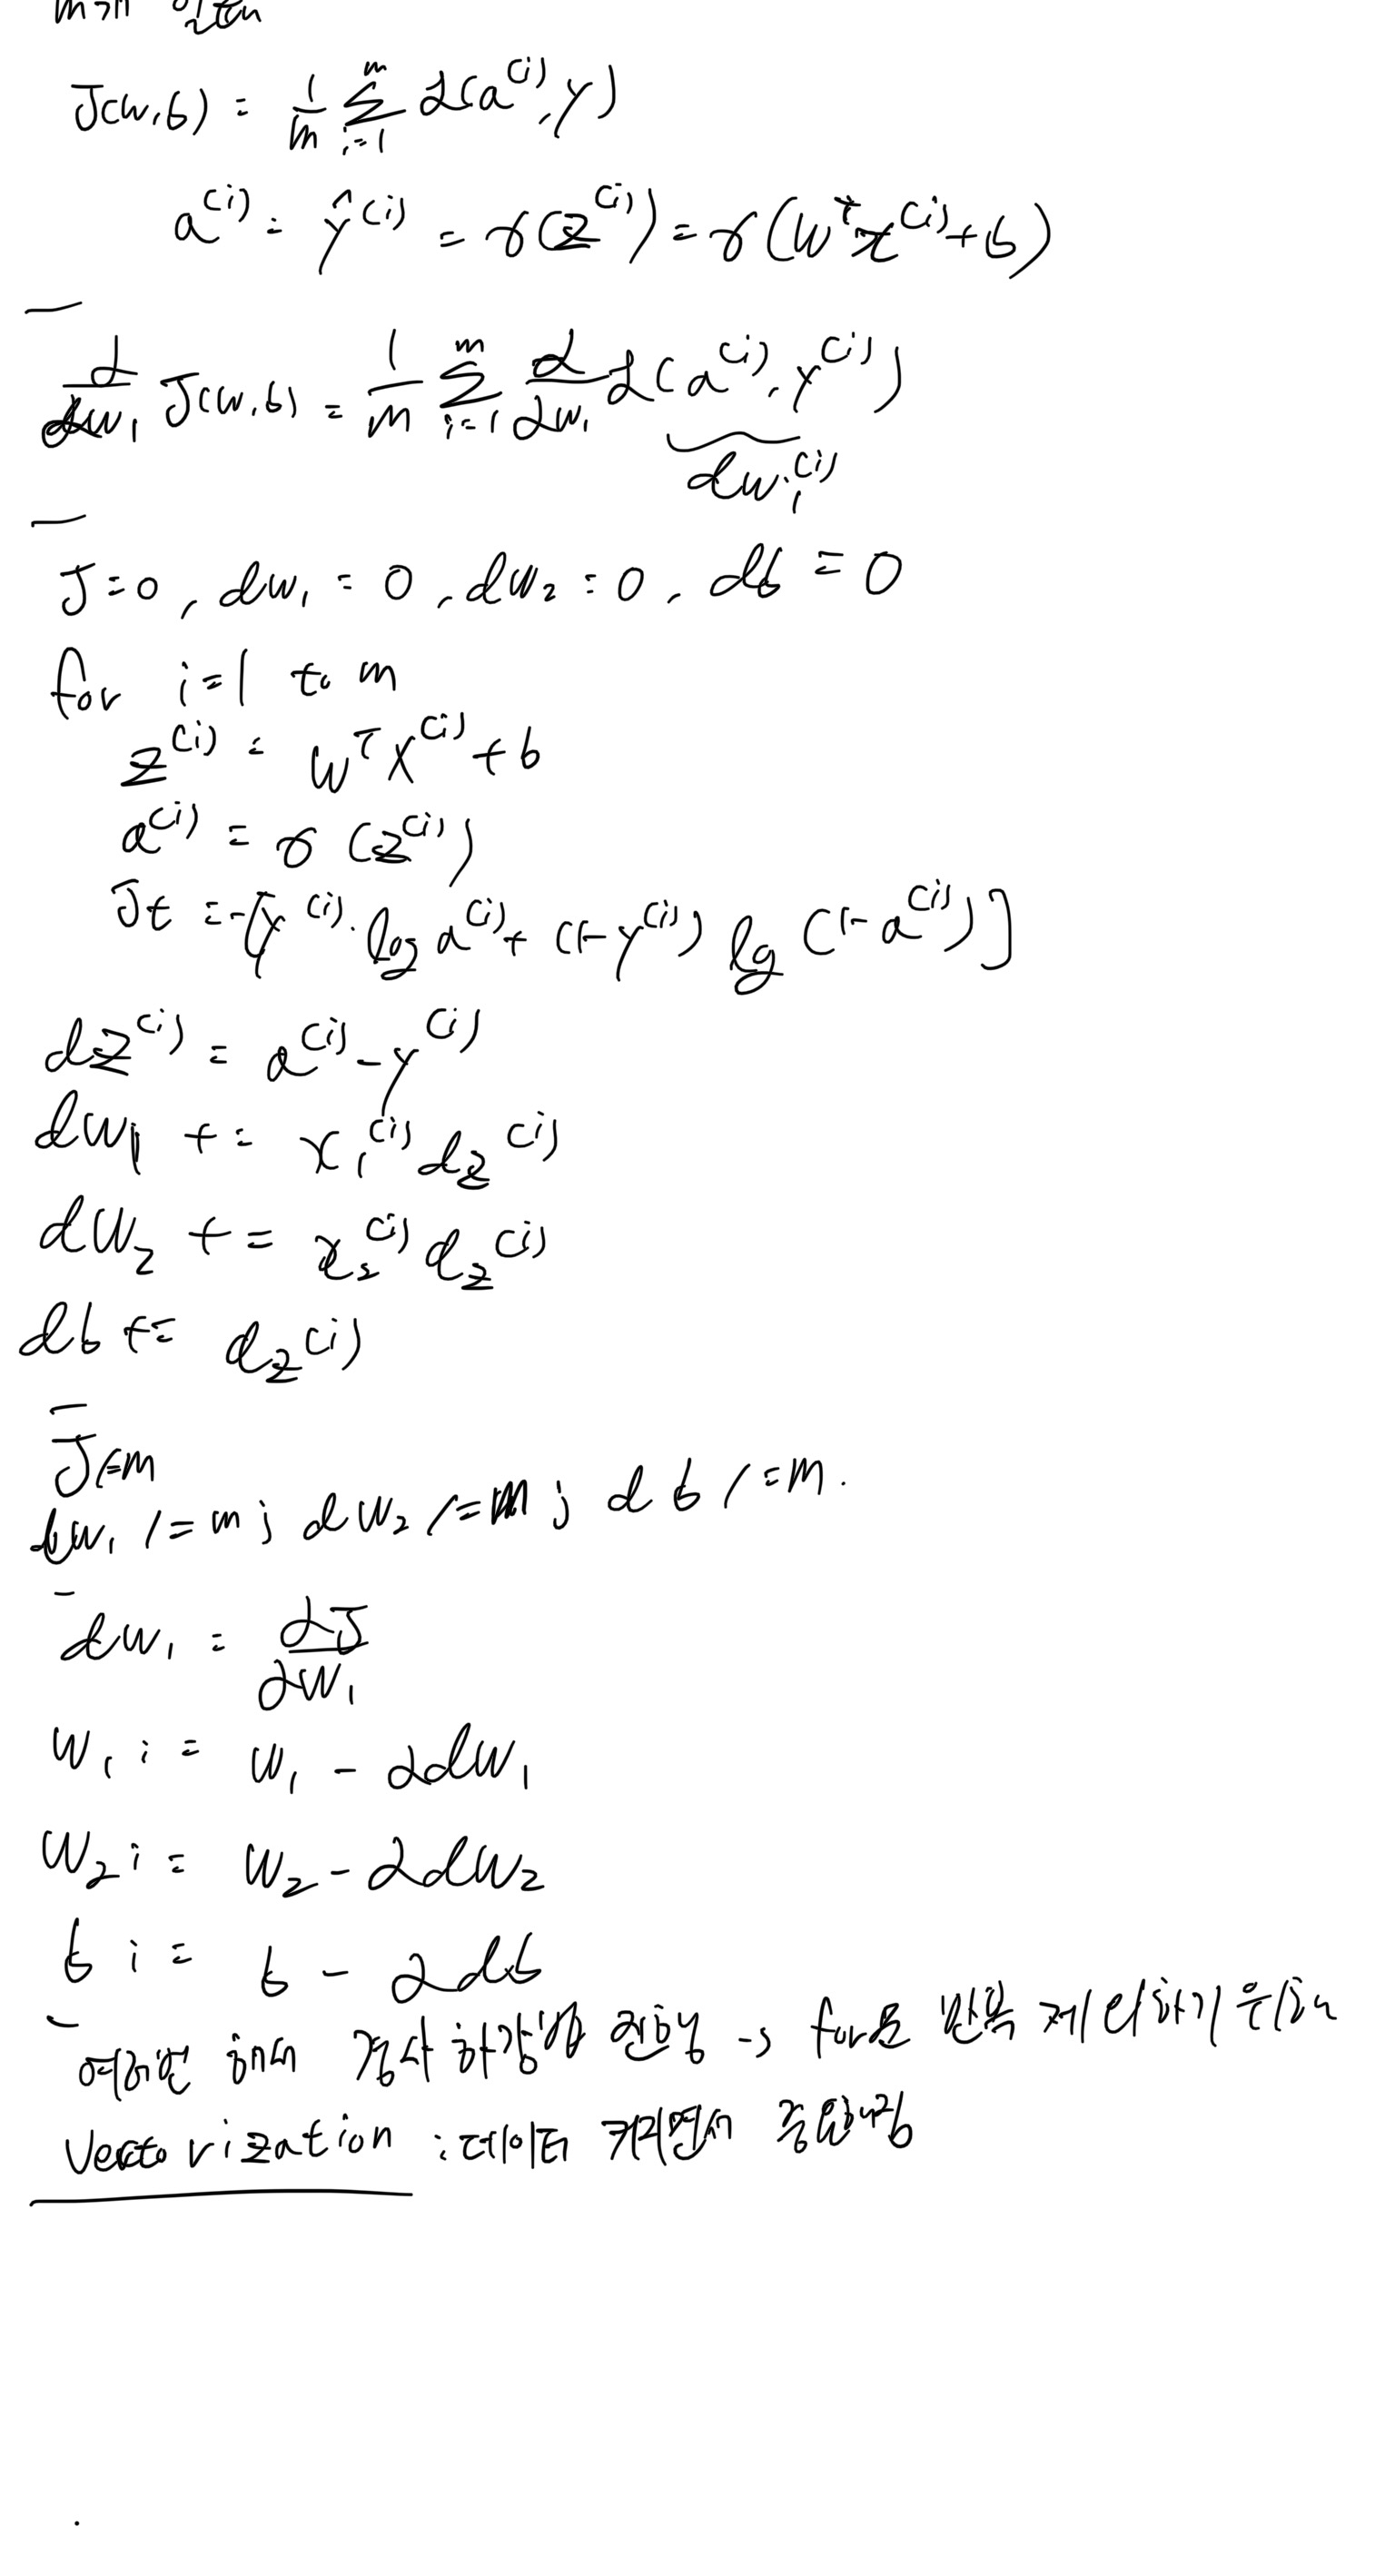 J(w,b) = 1/m Σ_{i=1}^{m} L(a^(i), y)
a^(i) = ŷ^(i) = σ(z^(i)) = σ(w^T x^(i) + b)
∂/∂w₁ J(w,b) = 1/m Σ_{i=1}^{m} ∂/∂w₁ L(a^(i), y^(i))
dw₁^(i)
J=0, dw₁=0, dw₂=0, db=0
for i=1 to m
z^(i) = w^T x^(i) + b
a^(i) = σ(z^(i))
J+ = -[y^(i) log a^(i) + (1-y^(i)) log (1-a^(i))]
dz^(i) = a^(i) - y^(i)
dw₁ += x₁^(i) dz^(i)
dw₂ += x₂^(i) dz^(i)
db += dz^(i)
J /= m
dw₁ /= m; dw₂ /= m; db /= m.
dw₁ = ∂J/∂w₁
w₁ := w₁ - αdw₁
w₂ := w₂ - αdw₂
b := b - αdb
여러번 해서 경사 하강법 진행 → for문 반복 제 하기 위해
Vectorization : 데이터 커지면서